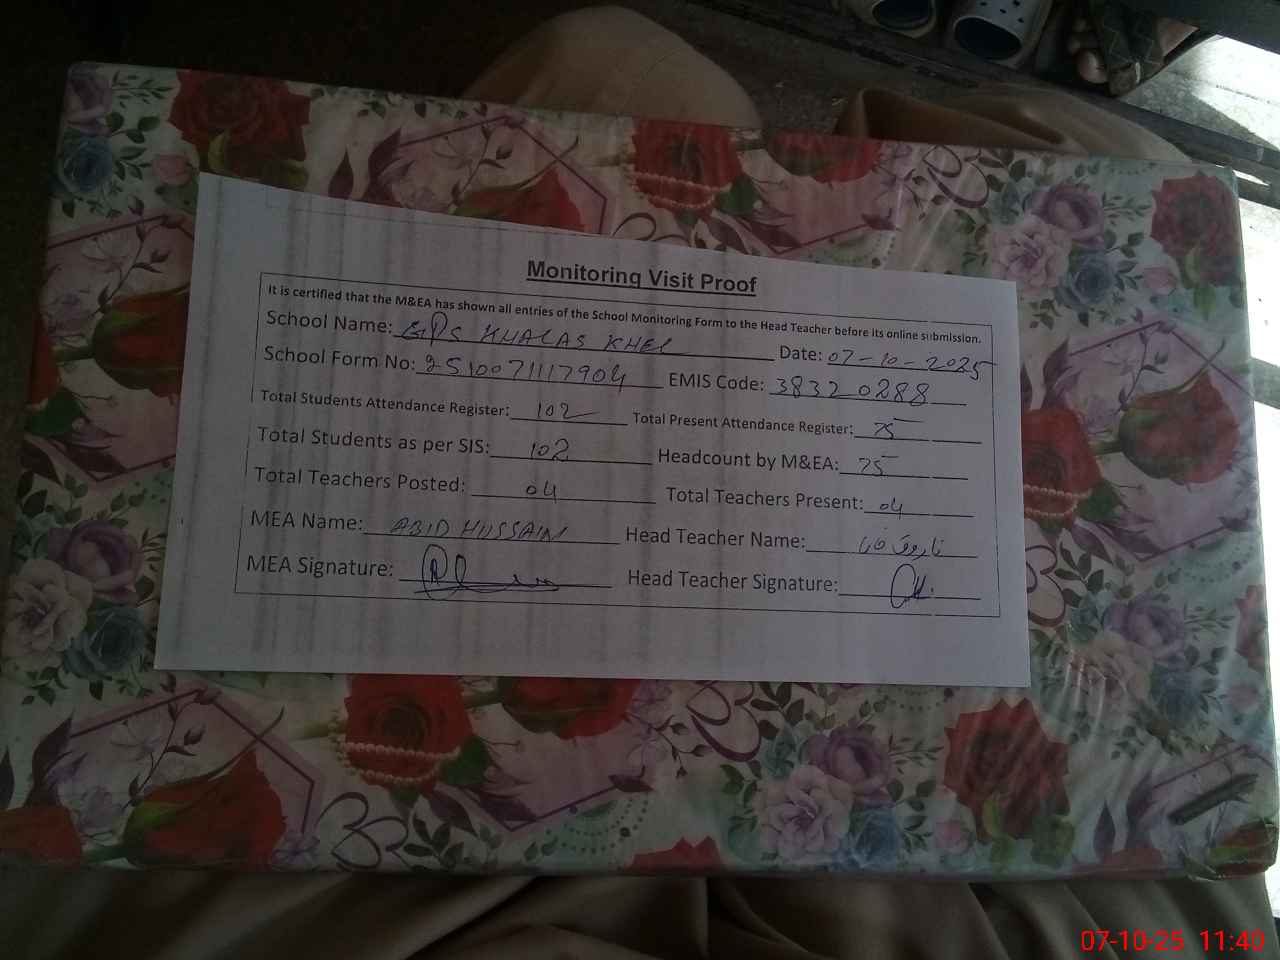 Monitoring Visit Proof
It is certified that the M&EA has shown all entries of the School Monitoring Form to the Head Teacher before its online submission.
School Name: GPS KHALAS KHEL Date: 07-10-2025
School Form No: 2510071117904 EMIS Code: 38320288
Total Students Attendance Register: 102 Total Present Attendance Register: 75
Total Students as per SIS: 102 Headcount by M&EA: 75
Total Teachers Posted: 04 Total Teachers Present: 04
MEA Name: ABID HUSSAIN Head Teacher Name:
MEA Signature: Head Teacher Signature:
07-10-25 11:40